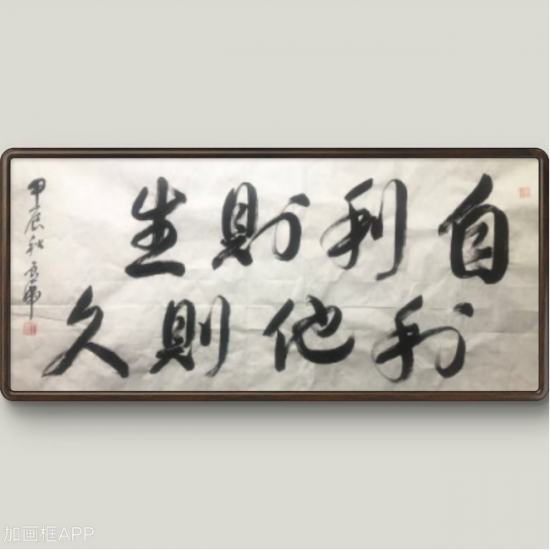 自利則生
利他則久
甲辰秋
加画框APP